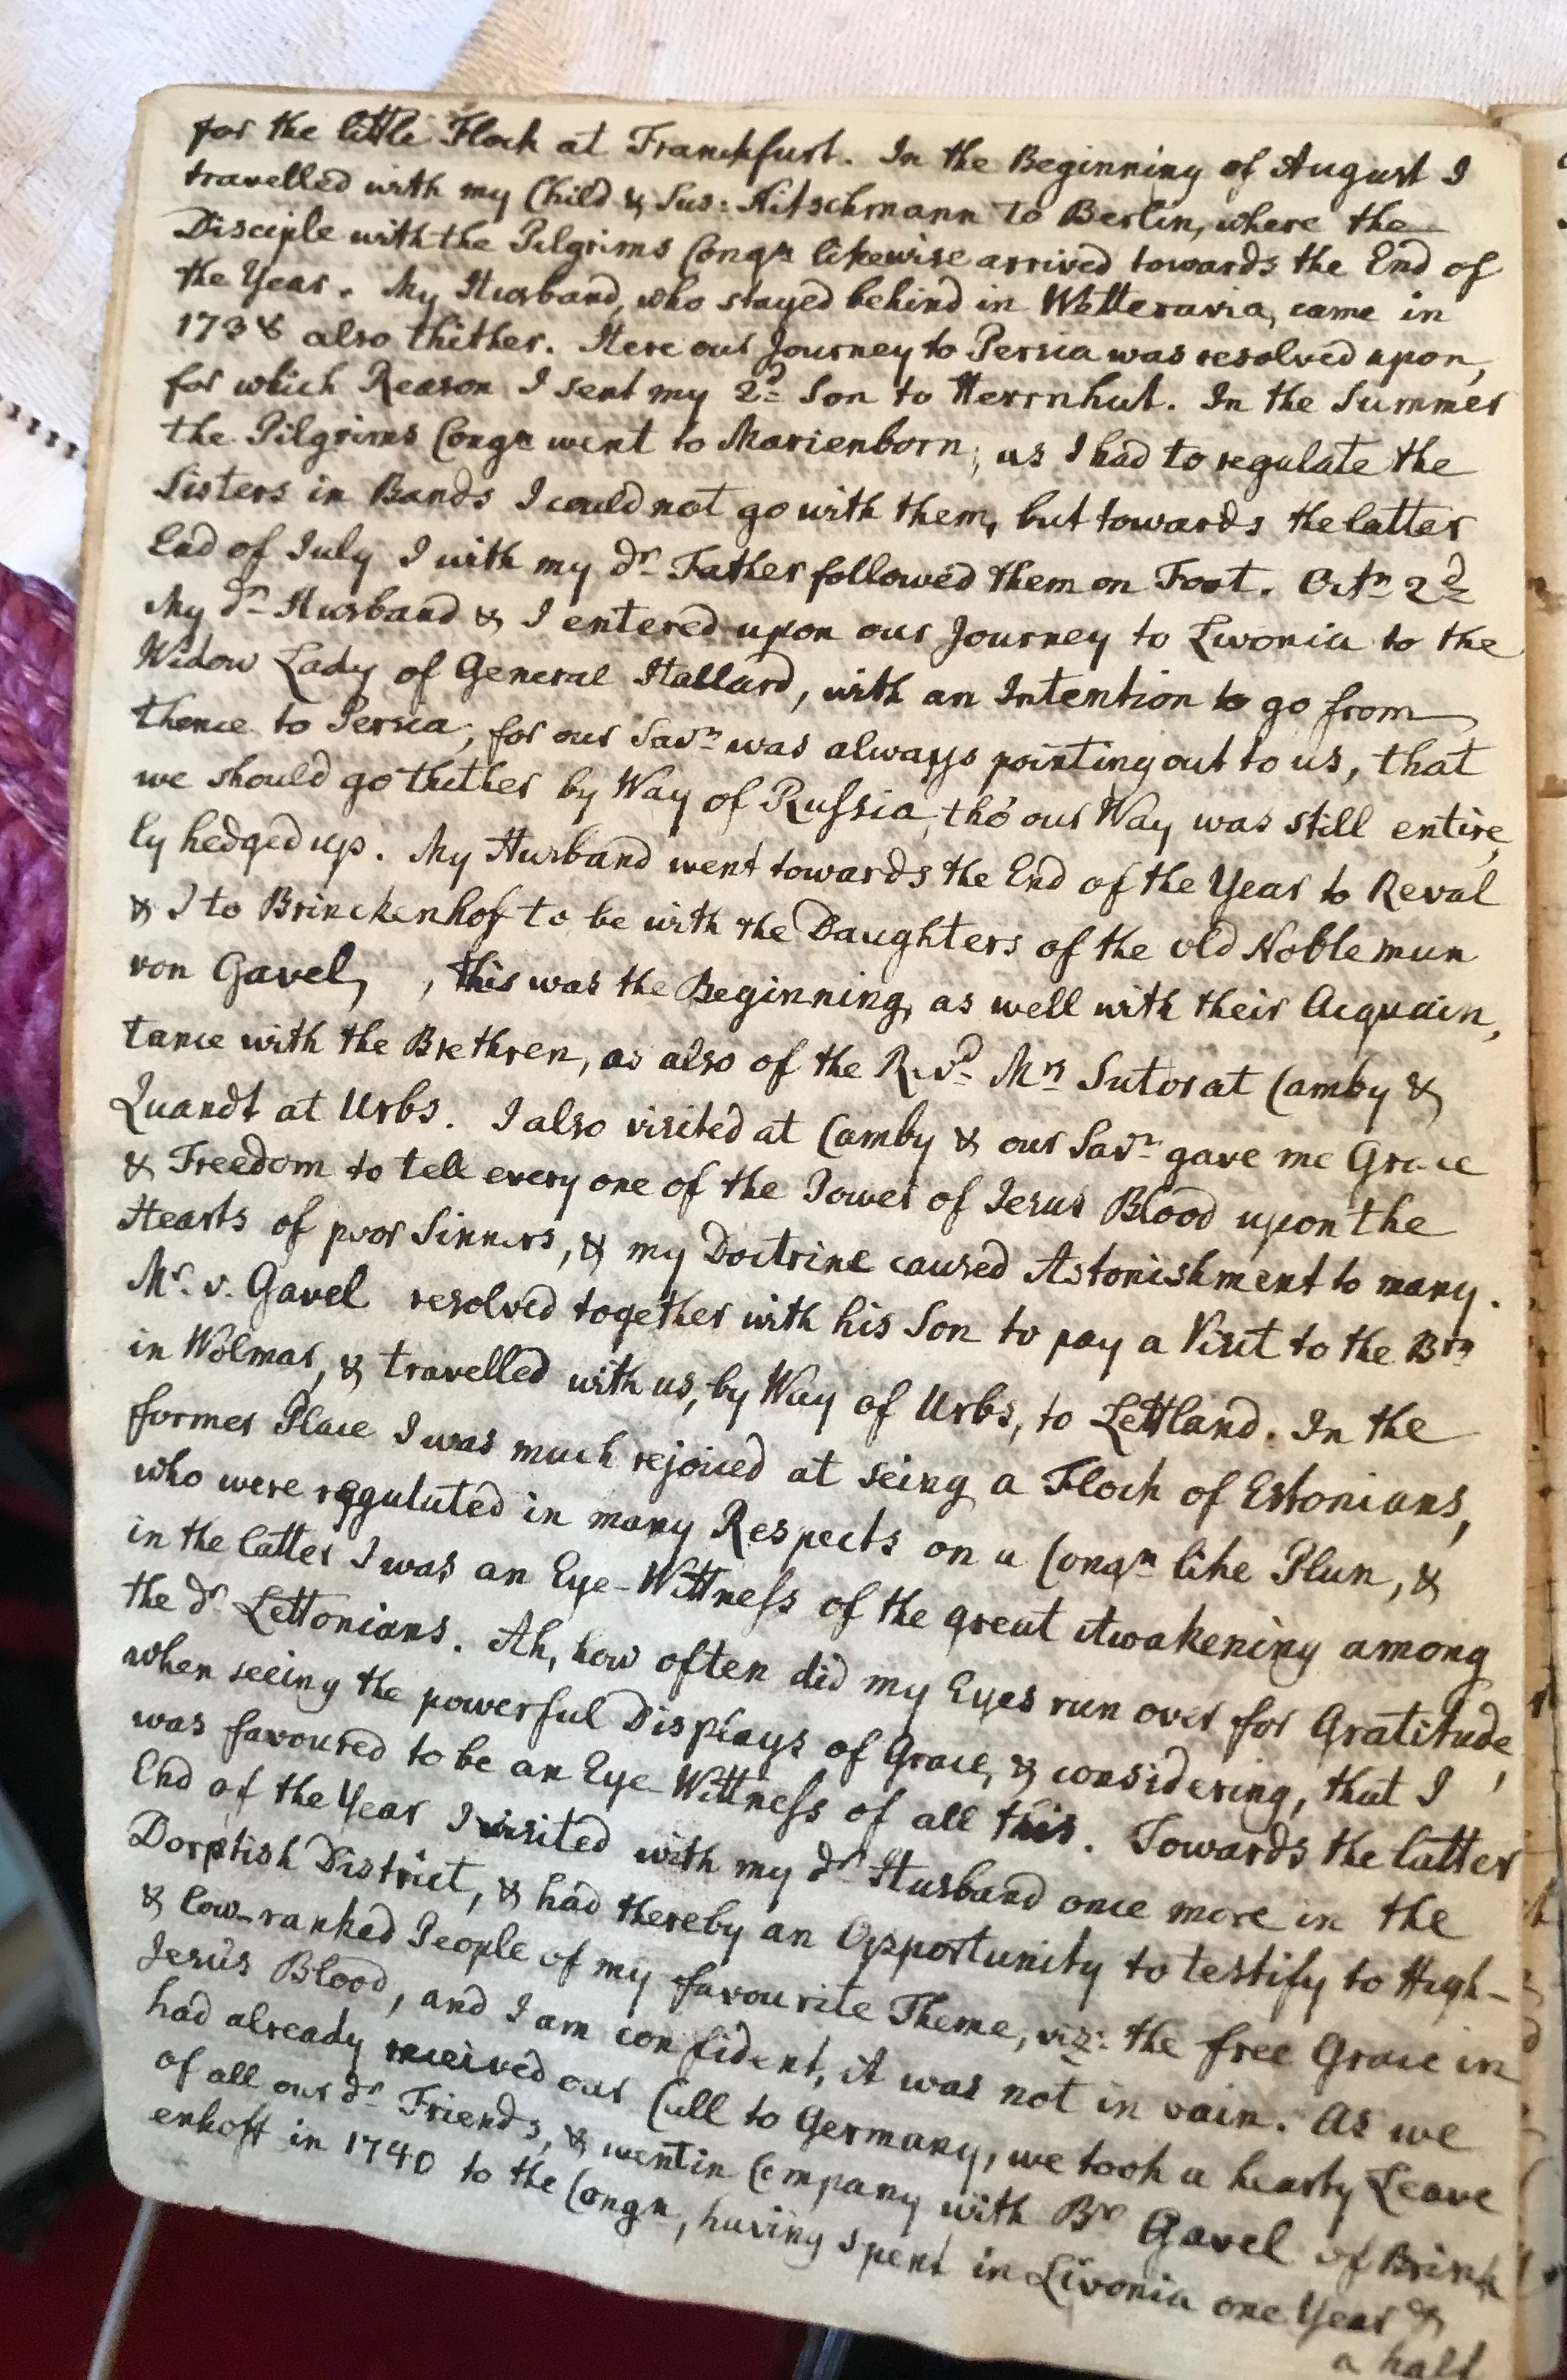 for the little Flock at Franckfurt. In the Beginning of August I
travelled with my Child & Sus: Nitschmann to Berlin, where the
Disciple with the Pilgrims Congn likewise arrived towards the End of
the Year. My Husband, who stayed behind in Wetteravia, came in
1738 also thither. Here our Journey to Persia was resolved upon,
for which Reason I sent my 2d Son to Herrnhut. In the Summer
the Pilgrims Congn went to Marienborn; as I had to regulate the
Sisters in Bands I could not go with them, but towards the latter
End of July I with my dr Father followed them on Foot. Octr 2d
My dr Husband & I entered upon our Journey to Livonia to the
Widow Lady of General Hallard, with an Intention to go from
thence to Persia; for our Savr was always pointing out to us, that
we should go thither by Way of Russia, tho' our Way was still entire,
ly hedged up. My Husband went towards the End of the Year to Reval
& I to Brinckenhof to be with the Daughters of the old Nobleman
von Gavel, , this was the Beginning, as well with their Acquain,
tance with the Brethren, as also of the Revd Mrs Sutor at Camby &
Quandt at Urbs. I also visited at Camby & our Savr gave me Grace
& Freedom to tell every one of the Power of Jesus Blood upon the
Hearts of poor Sinners, & my Doctrine caused Astonishment to many.
Mr. v. Gavel resolved together with his Son to pay a Visit to the Brn
in Wolmar, & travelled with us, by Way of Urbs, to Lettland. In the
former Place I was much rejoiced at seing a Flock of Estonians,
who were regulated in many Respects on a Congn like Plan, &
in the latter I was an Eye-Wittness of the great Awakening among
the dr Lettonians. Ah, how often did my Eyes run over for Gratitude,
when seeing the powerful Displays of Grace, & considering, that I
was favoured to be an Eye-Wittness of all this. Towards the latter
End of the Year I visited with my dr Husband once more in the
Dorptish District, & had thereby an Opportunity to testify to High-
& low-ranked People of my favourite Theme, viz: the free Grace in
Jesus Blood, and I am confident, it was not in vain. As we
had already received our Call to Germany, we took a hearty Leave
of all our dr Friends, & went in Company with Br Gavel of Brink
enhoff in 1740 to the Congn, having spent in Livonia one Year &
a half